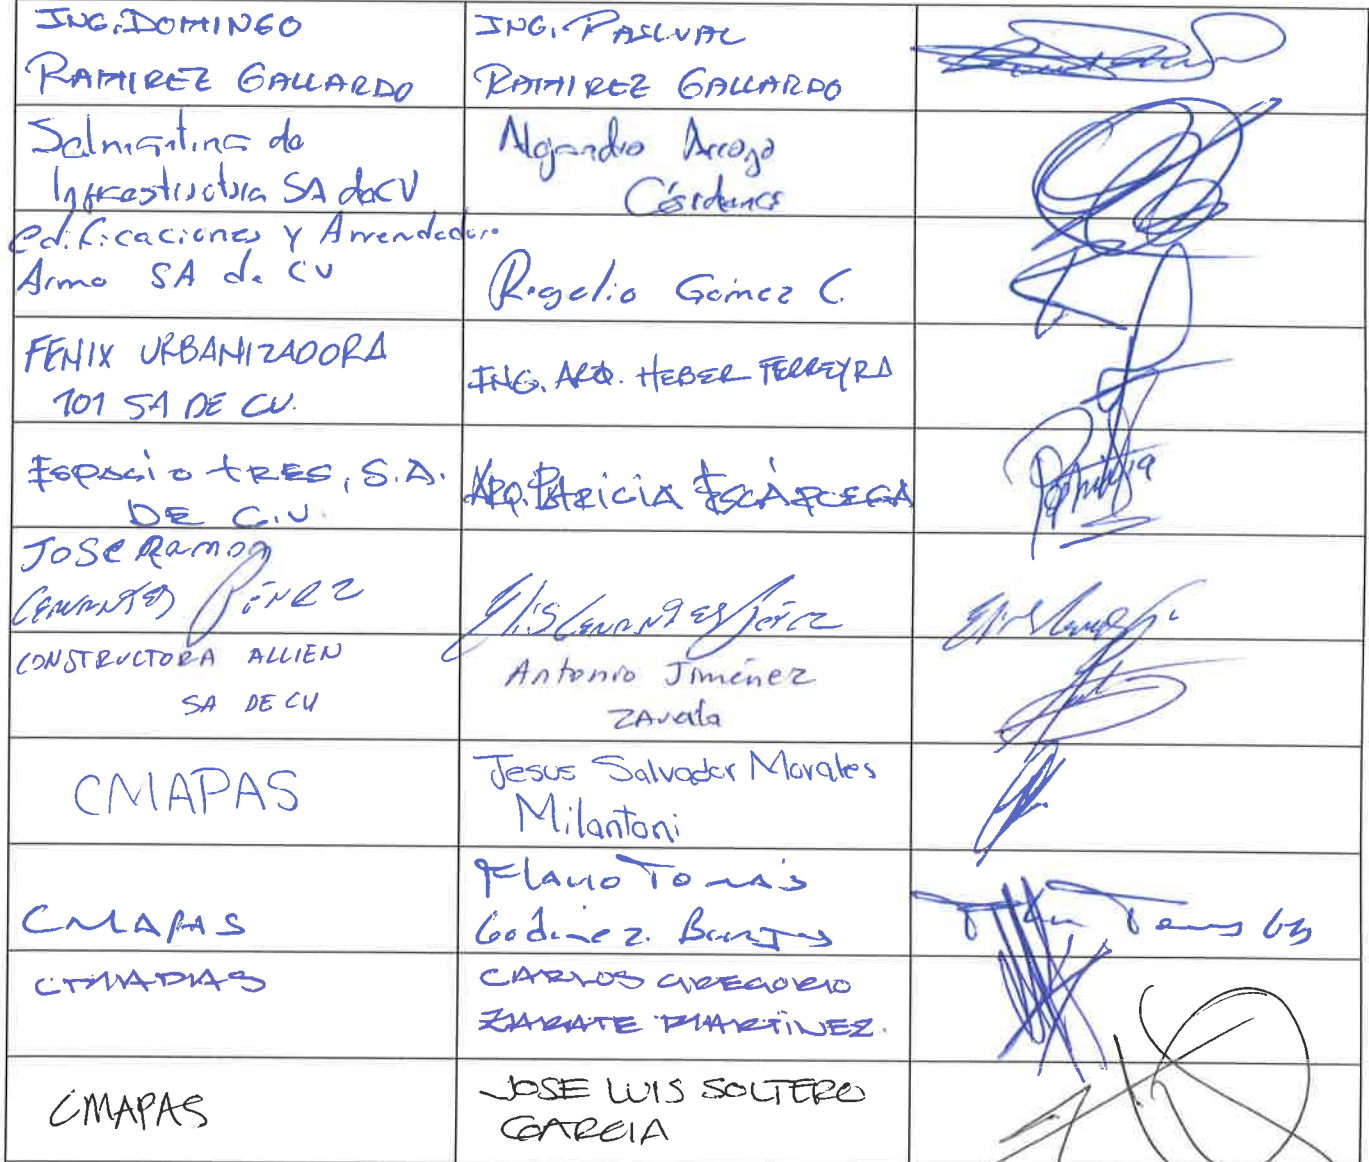 ING. DOMINGO
RAMIREZ GALLARDO
ING. PASCUAL
RAMIREZ GALLARDO
Salmantina de
Infraestructura SA de CV
Alejandro Arroyo
Cárdenas
edificaciones y Arrendadora
Armo SA de CV
Rogelio Gómez C.
FENIX URBANIZADORA
101 SA DE CV.
ING. ARQ. HEBER FERREYRA
ESPACIO TRES, S.A.
DE C.V.
ARQ. PATRICIA ESCÁRCEGA
JOSE Ramon
CERVANTES PÉREZ
Elis Cervantes Pérez
CONSTRUCTORA ALLIEN
SA DE CV
Antonio Jiménez
ZAvala
CMAPAS
Jesus Salvador Morales
Milantoni
CMAPAS
Flavio Tomás
Godinez
CMAPAS
CARLOS GREGORIO
ZARATE MARTÍNEZ.
CMAPAS
JOSE LUIS SOLTERO
GARCIA